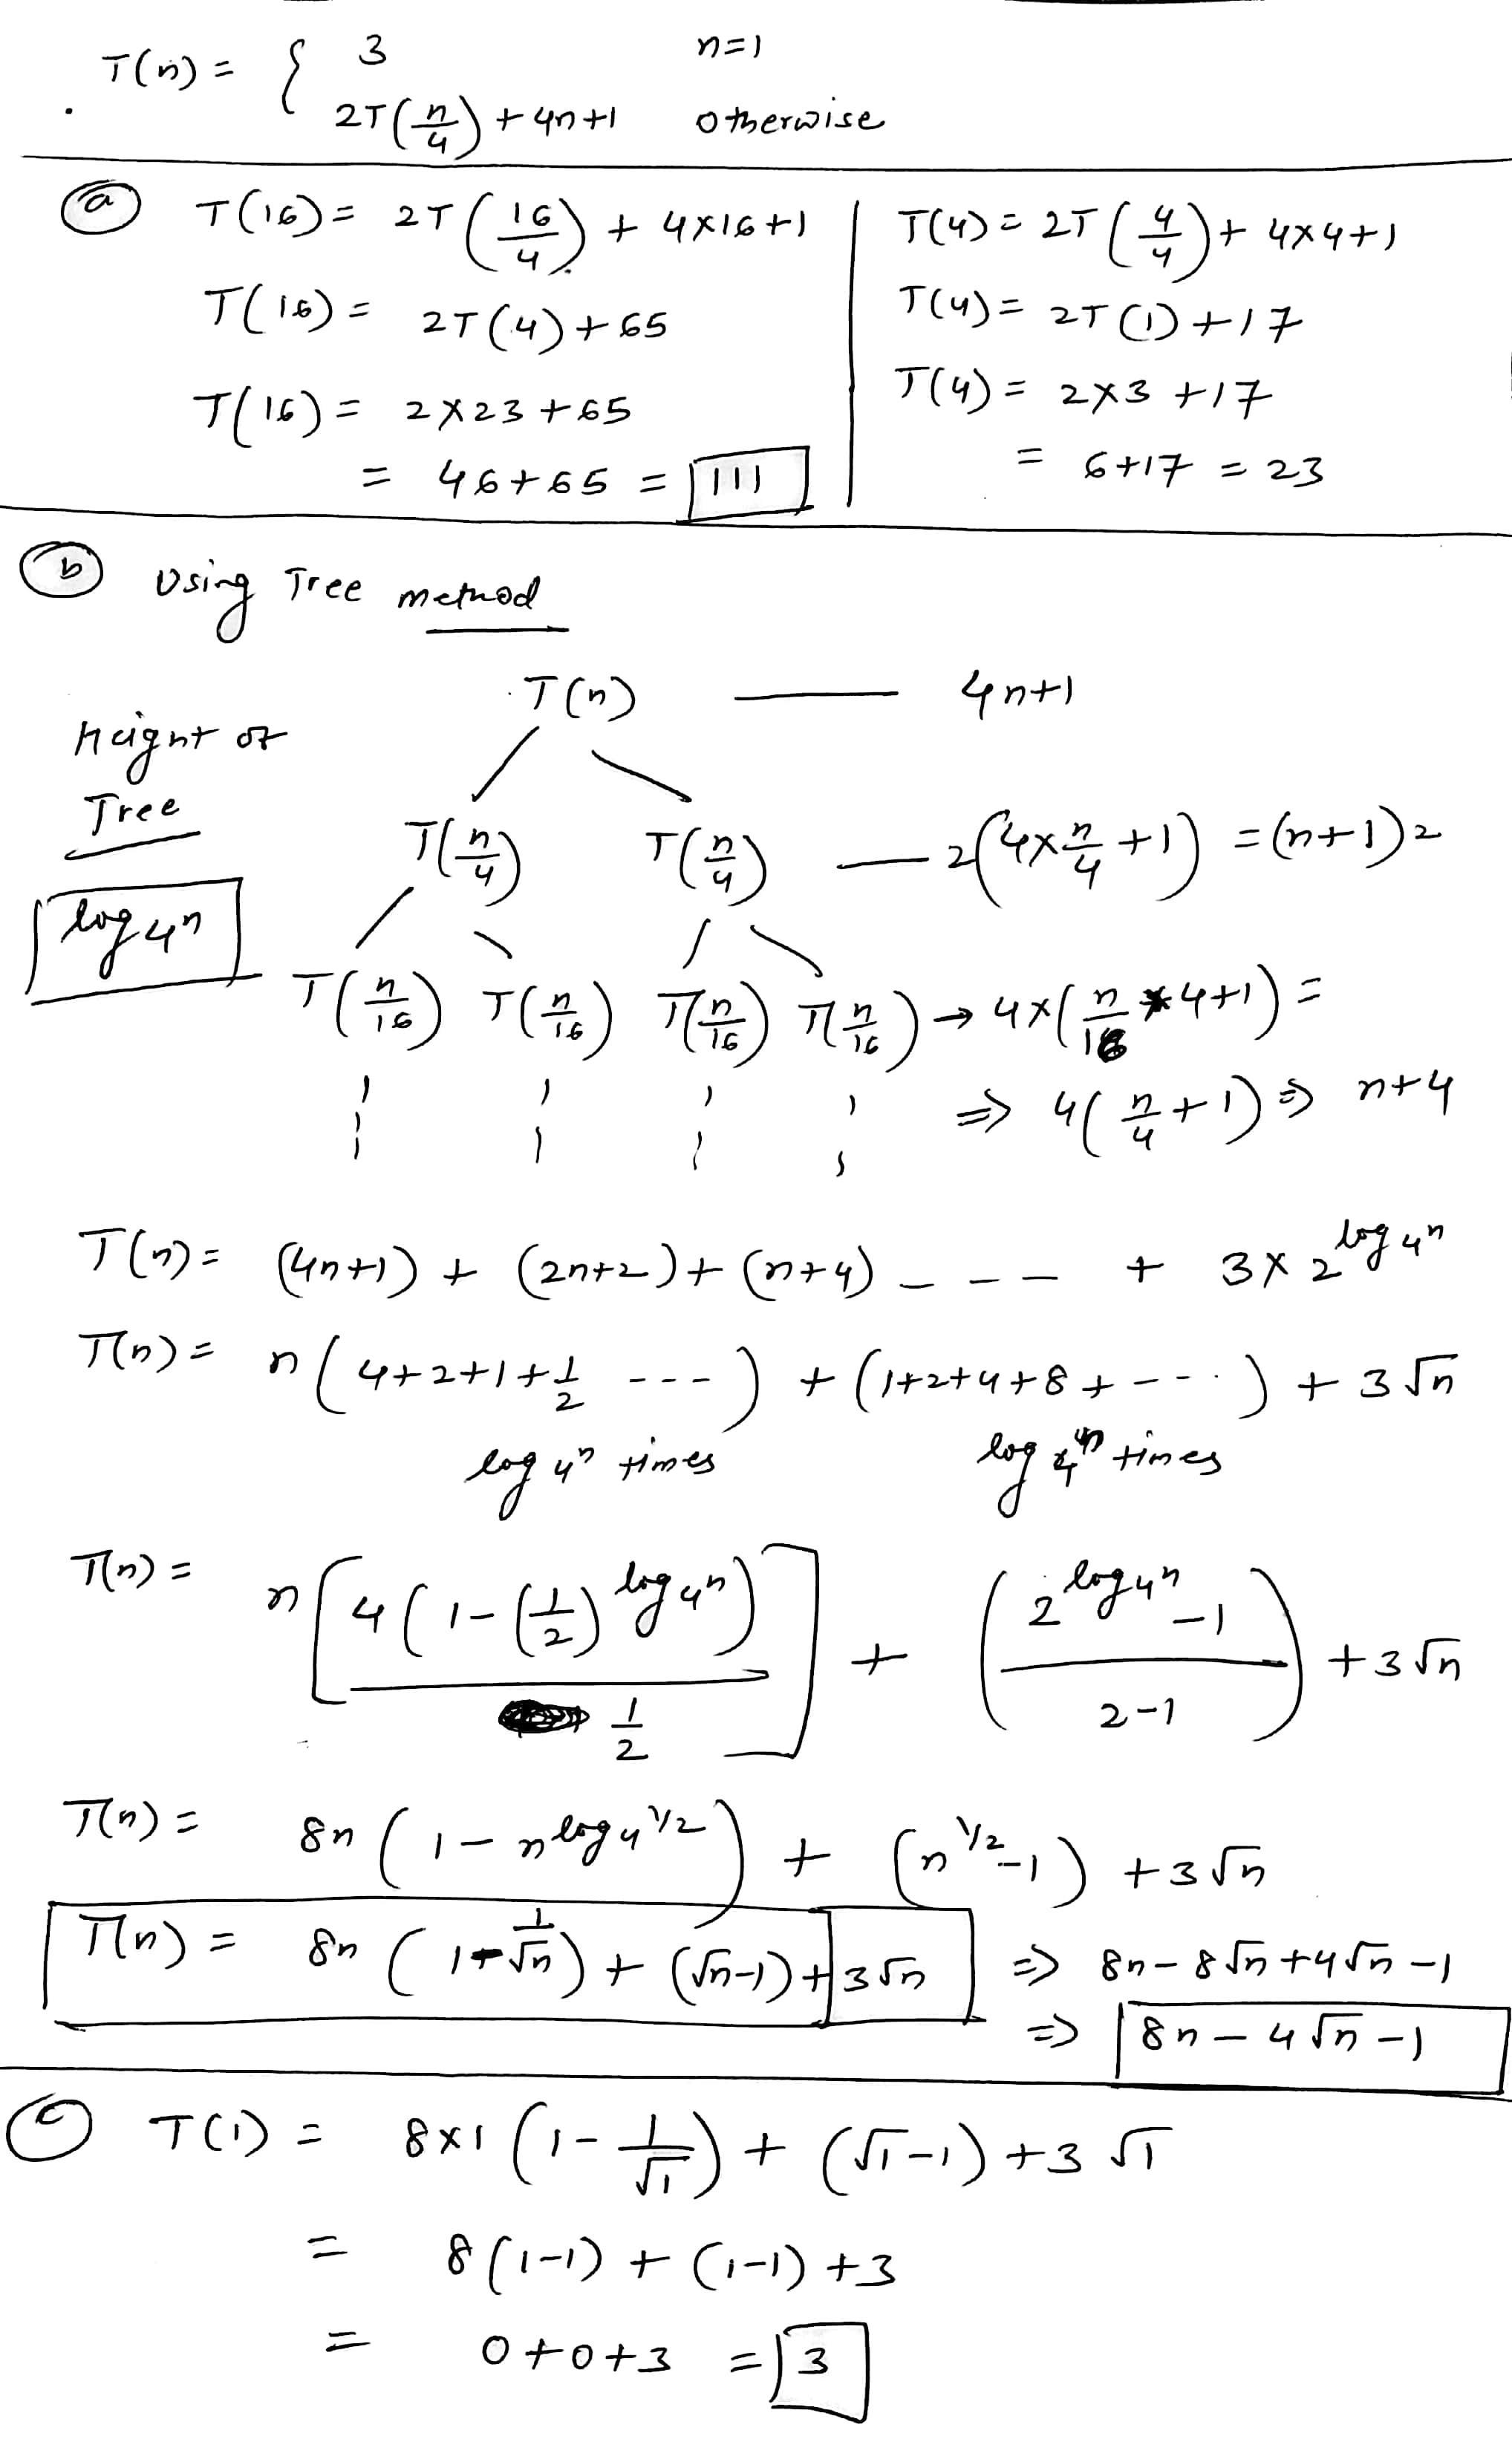 T(n) = { 3 n=1
2T(n/4) + 4n+1 otherwise
(a) T(16) = 2T(16/4) + 4×16+1
T(16) = 2T(4) + 65
T(16) = 2×23+65
= 46+65 = 111
T(4) = 2T(4/4) + 4×4+1
T(4) = 2T(1) + 17
T(4) = 2×3 +17
= 6+17 = 23
(b) Using Tree method
Height of
Tree
log₄n
T(n) —— 4n+1
T(n/4) T(n/4) — 2(4×n/4 +1) = (n+1)2
T(n/16) T(n/16) T(n/16) T(n/16) → 4×(n/16 *4+1) =
⇒ 4(n/4+1) ⇒ n+4
T(n) = (4n+1) + (2n+2) + (n+4) - - - - + 3×2^log₄n
T(n) = n(4+2+1+1/2 ---) + (1+2+4+8+---) + 3√n
log₄n times log₄n times
T(n) = n[4(1-(1/2)^log₄n) / 1/2] + (2^log₄n -1 / 2-1) + 3√n
T(n) = 8n(1 - n^log₄1/2) + (n^1/2 -1) + 3√n
T(n) = 8n(1 - 1/√n) + (√n-1) + 3√n ⇒ 8n - 8√n + 4√n - 1
⇒ 8n - 4√n - 1
(c) T(1) = 8×1(1 - 1/√1) + (√1-1) + 3√1
= 8(1-1) + (1-1) +3
= 0+0+3 = 3